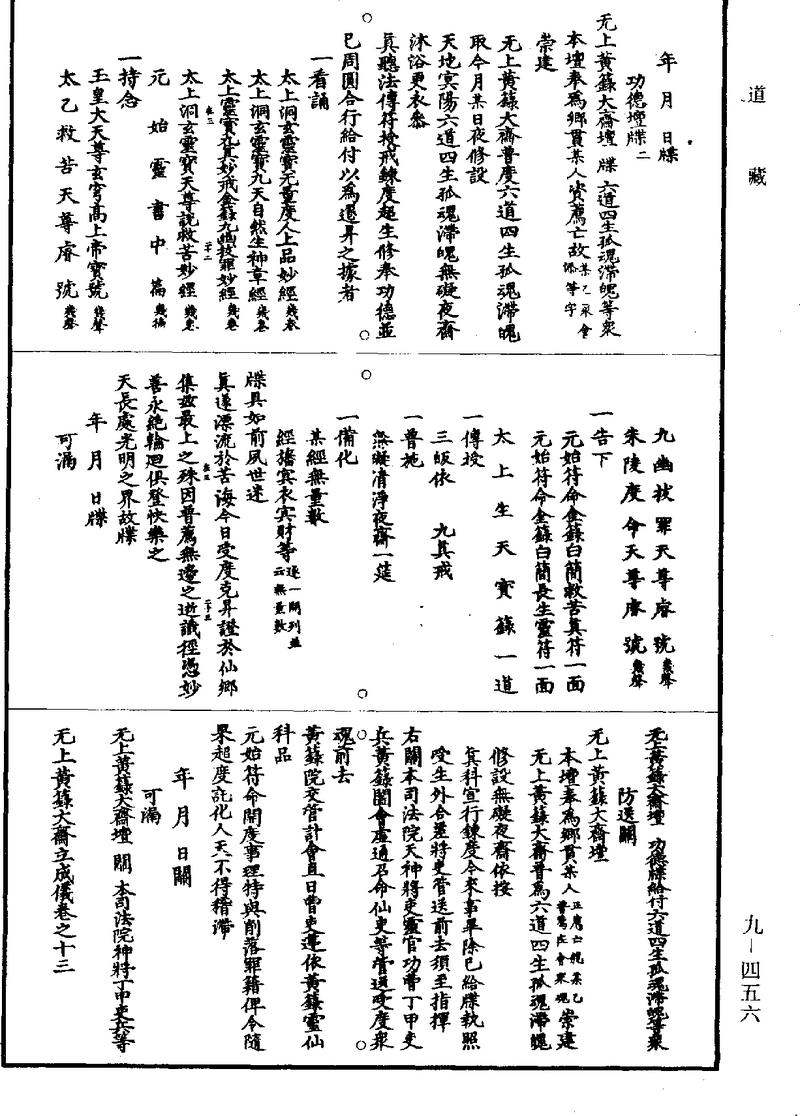 道藏
年月日牒
功德壇牒二
无上黃籙大齋壇 牒 六道四生孤魂滯魄等衆
本壇奉爲鄉貫某人資薦亡故某乙衆會添等字
崇建
无上黃籙大齋普度六道四生孤魂滯魄
取今月某日夜修設
天地冥陽六道四生孤魂滯魄無礙夜齋
沐浴更衣叅
眞聽法傳符授戒鍊度超生修奉功德並
已周圓合行給付以爲還昇之據者
一看誦
太上洞玄靈寶无量度人上品妙經幾卷
太上洞玄靈寶九天自然生神章經幾卷
太上靈寶九眞妙戒金籙九幽拔罪妙經幾卷
太上洞玄靈寶天尊說救苦妙經幾卷
元始靈書中篇幾徧
一持念
玉皇大天尊玄穹高上帝寶號幾聲
太乙救苦天尊睿號幾聲
九幽拔罪天尊睿號幾聲
朱陵度命天尊睿號幾聲
一告下
元始符命金籙白簡救苦眞符一面
元始符命金籙白簡長生靈符一面
太上生天寶籙一道
一傳授
三皈依 九眞戒
一普施
無礙清淨夜齋一筵
一備化
某經無量數
經旛冥衣冥財等逐一開列並云無量數
牒具如前夙世迷
眞遂漂流於苦海今日受度克昇證於仙鄉
集茲最上之殊因普薦無邊之逝識徑憑妙
善永絶輪迴俱登快樂之
天長處光明之界故牒
年月日牒
可漏
无上黃籙大齋壇 功德牒給付六道四生孤魂滯魄等衆
防送關
无上黃籙大齋壇
本壇奉爲鄉貫某人正薦亡魂某乙普爲在會衆魂崇建
无上黃籙大齋普爲六道四生孤魂滯魄
修設無礙夜齋依按
眞科宣行鍊度今來事畢除已給牒執照
受生外合差將吏管送前去須至指揮
右關本司法院天神將吏靈官功曹丁甲吏
兵黃籙闔會虛通召命仙吏等管送受度衆
魂前去
黃籙院交管計會直日曹吏遵依黃籙靈仙
科品
元始符命開度事理特與削落罪籍俾令隨
果超度託化人天不得稽滯
年月日關
可漏
无上黃籙大齋壇 關 本司法院神將丁甲吏兵等
无上黃籙大齋立成儀卷之十三
九－四五六